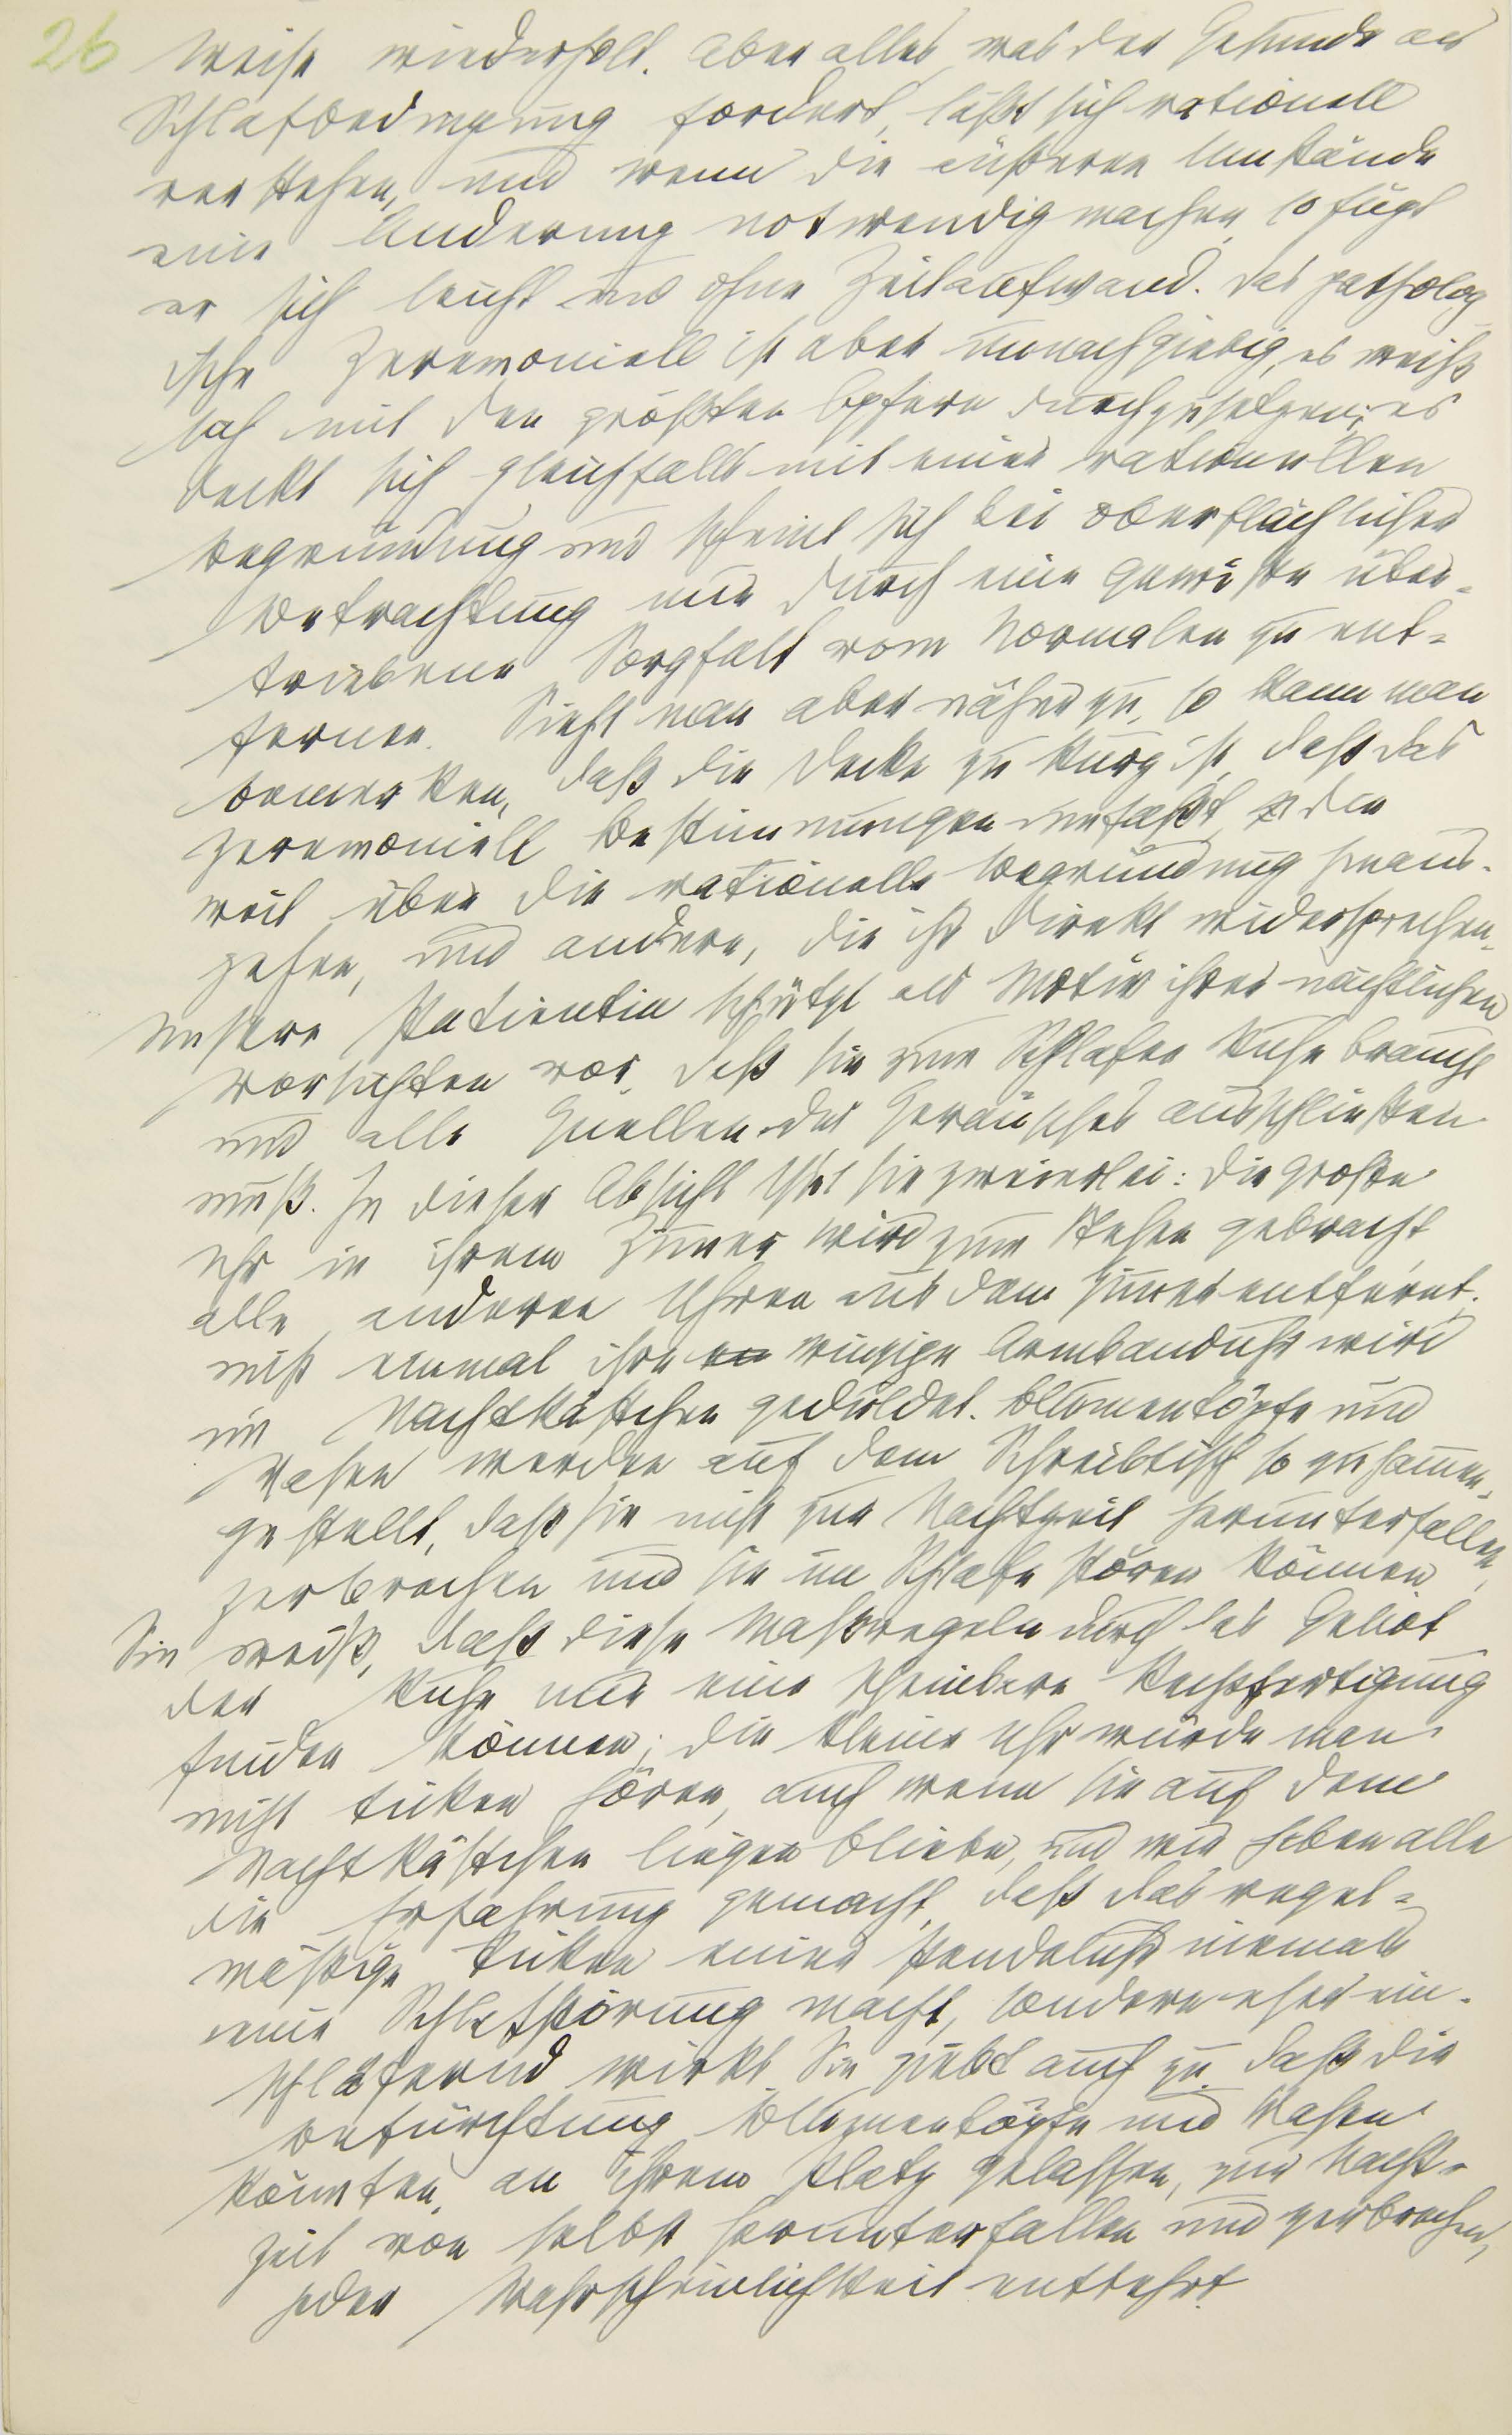 26
Weise wiederholt. Aber alles, was der Gesunde als
Schlafbedingung fordert, läßt sich rationell
verstehen, und wenn die äußeren Umstände
eine Änderung notwendig machen, so fügt
er sich leicht und ohne Zeitaufwand. Das patholog
ische Zeremoniell ist aber unnachgiebig, es weiß
sich mit den größten Opfern durchzusetzen; es
deckt sich gleichfalls mit einer rationellen
Begründung und scheint sich bei oberflächlicher
Betrachtung nur durch eine gewisse über-
triebene Sorgfalt vom Normalen zu ent-
fernen. Sieht man aber näher zu, so kann man
bemerken, daß die Decke zu kurz ist, daß das
Zeremoniell Bestimmungen umfaßt, die
weit über die rationelle Begründung hinaus-
gehen, und andere, die ihr direkt widersprechen.
Unsere Patientin schützt als Motiv ihrer nächtlichen
Vorsichten vor, daß sie zum Schlafen Ruhe braucht
und alle Quellen des Geräusches ausschließen
muß. In dieser Absicht tut sie zweierlei: Die große
Uhr in ihrem Zimmer wird zum Stehen gebracht,
alle anderen Uhren aus dem Zimmer entfernt,
nicht einmal ihre winzige Armbanduhr wird
im Nachtkästchen geduldet. Blumentöpfe und
Vasen werden auf dem Schreibtisch so zusammen-
gestellt, daß sie nicht zur Nachtzeit herunterfallen,
zerbrechen und sie im Schlafe stören können.
Sie weiß, daß diese Maßregeln durch das Gebot
der Ruhe nur eine scheinbare Rechtfertigung
finden können; die kleine Uhr würde man
nicht ticken hören, auch wenn sie auf dem
Nachtkästchen liegen bliebe, und wir haben alle
die Erfahrung gemacht, daß das regel-
mäßige Ticken einer Pendeluhr niemals
eine Schlafstörung macht, sondern eher ein-
schläfernd wirkt. Sie gibt auch zu, daß die
Befürchtung, Blumentöpfe und Vasen
könnten, an ihrem Platz gelassen, zur Nacht-
zeit von selbst herunterfallen und zerbrechen,
jeder Wahrscheinlichkeit entbehrt.